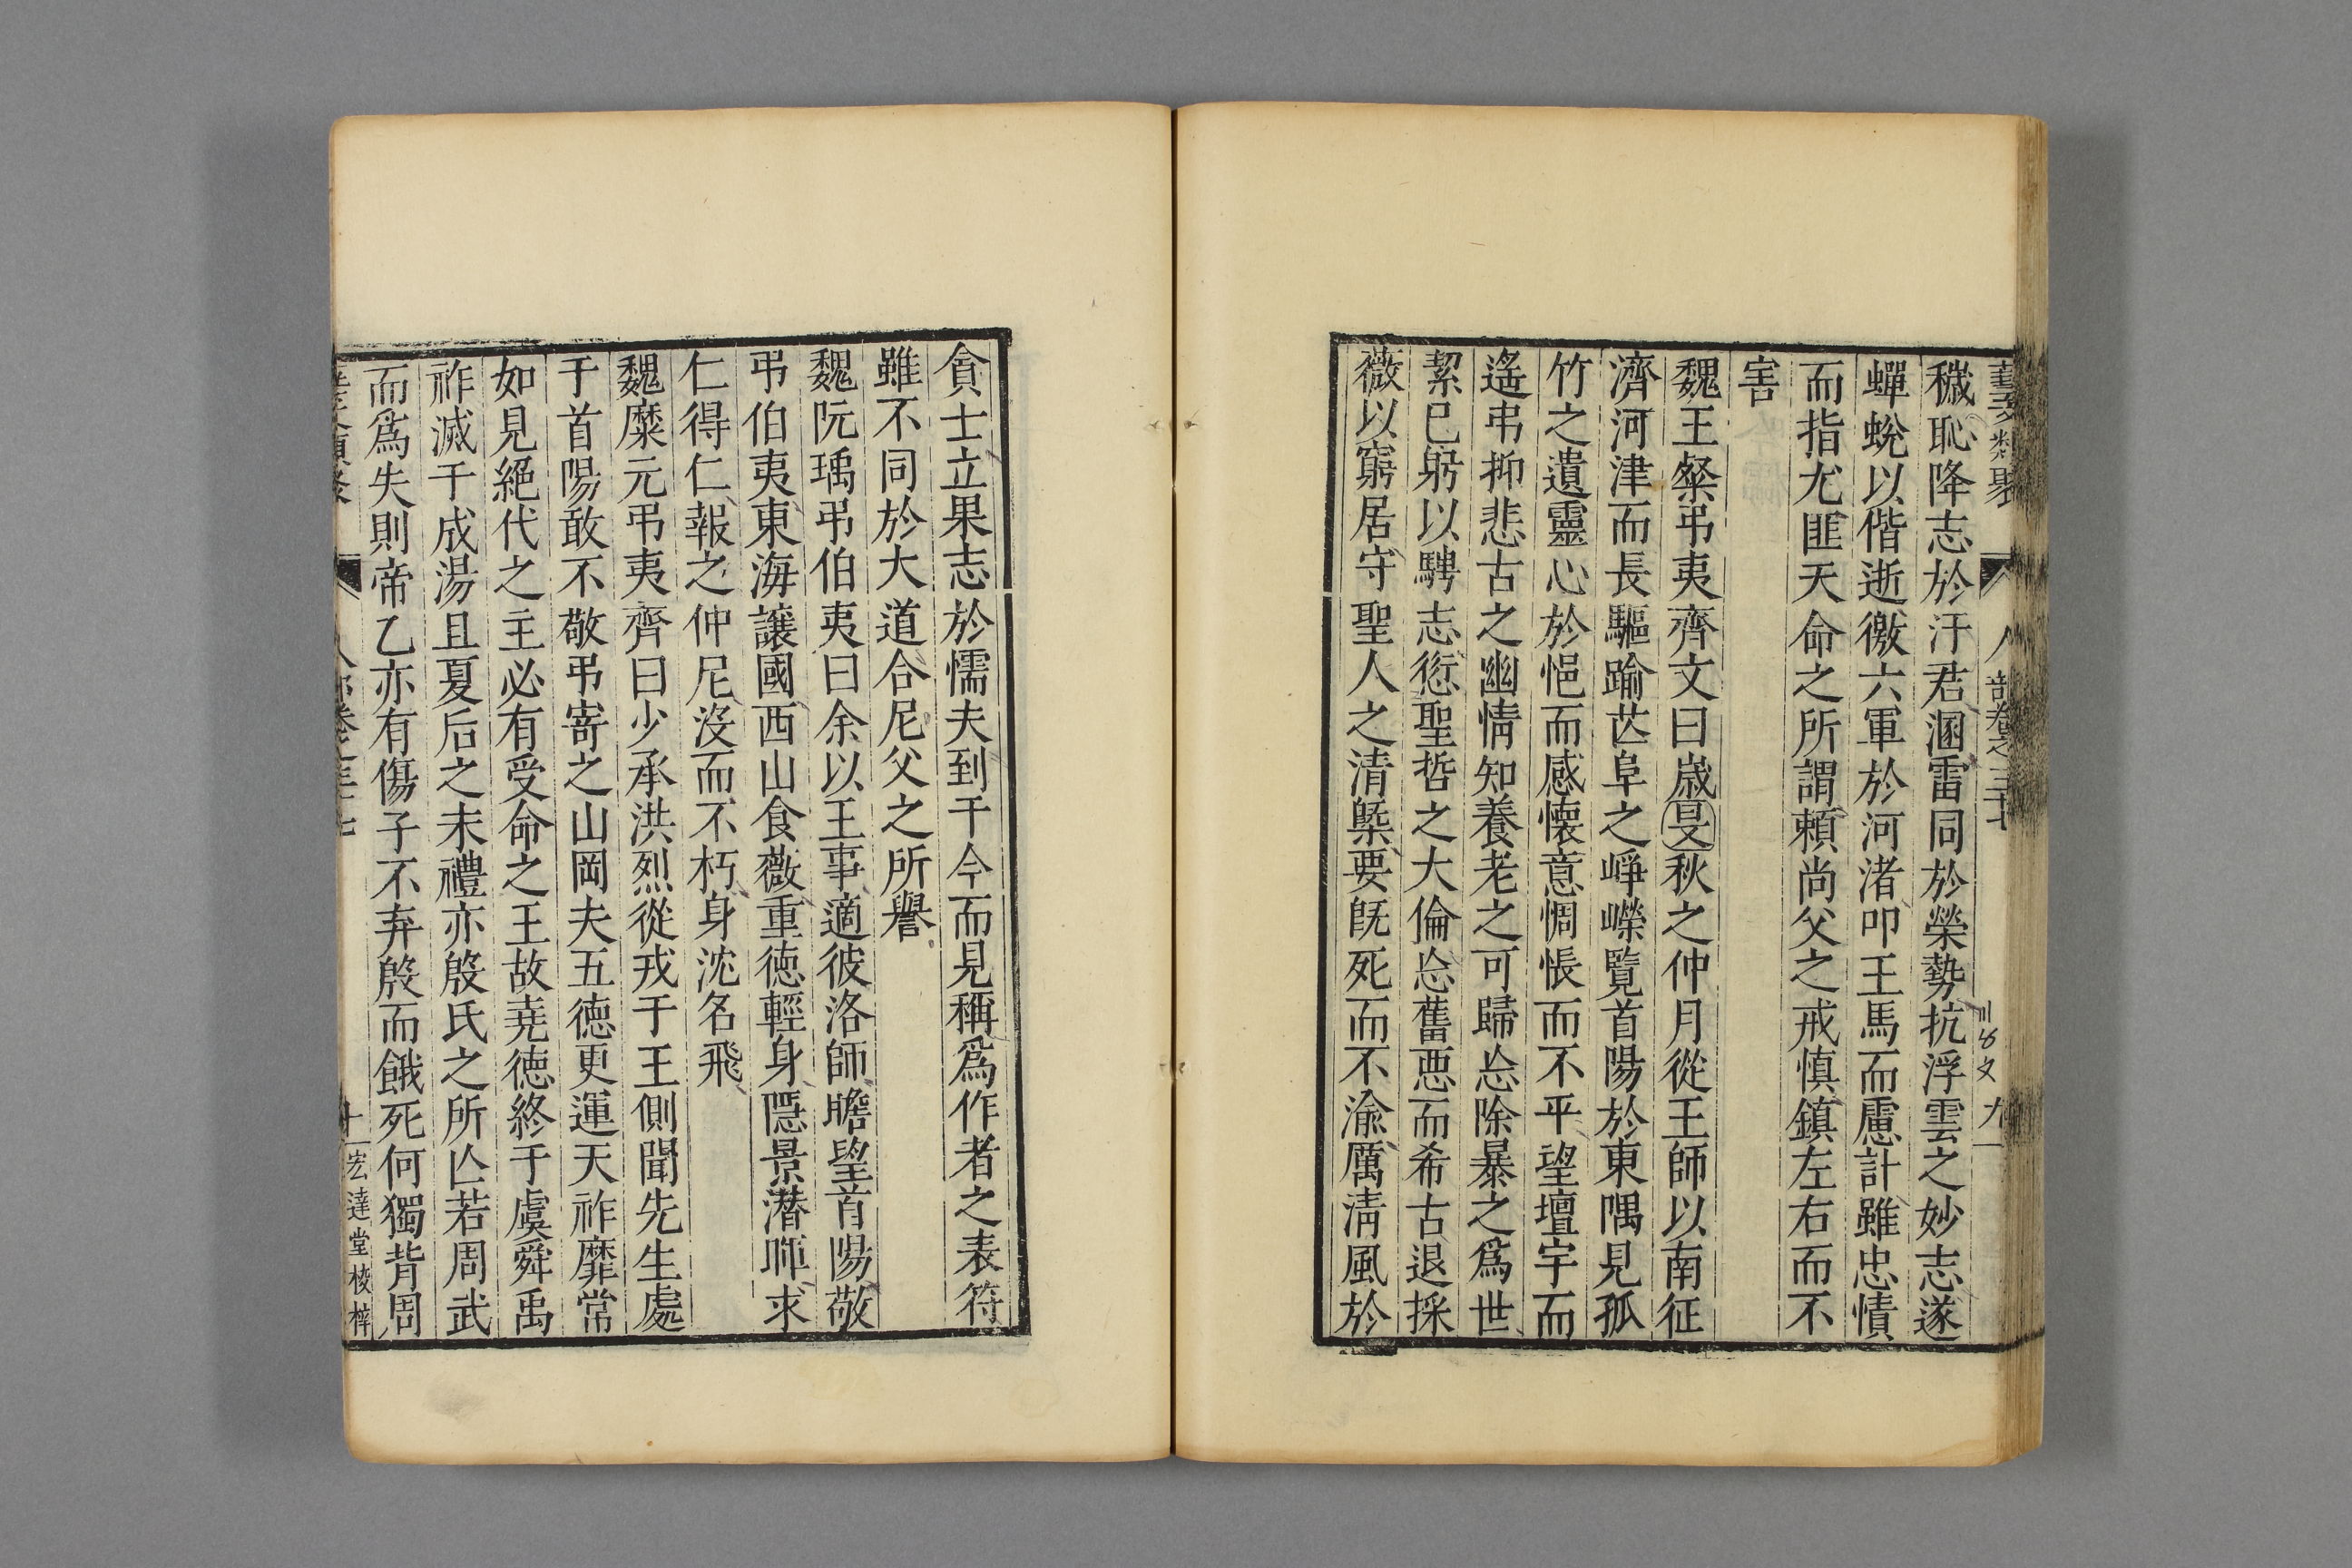 藝文類聚 人部卷之三十七
穢恥降志於汙君溷雷同於榮勢抗浮雲之妙志遂
蟬蛻以偕逝徼六軍於河渚叩王馬而慮計雖忠憤
而指尤匪天命之所謂賴尚父之戒慎鎮左右而不
害
魏王粲弔夷齊文曰歳旻秋之仲月從王師以南征
濟河津而長驅踰芒阜之崢嶸覽首陽於東隅見孤
竹之遺靈心於悒而感懷意惆悵而不平望壇宇而
遙弔抑悲古之幽情知養老之可歸忘除暴之爲世
絜已躬以騁志愆聖哲之大倫忘舊惡而希古退採
薇以窮居守聖人之清槩要旣死而不渝厲清風於
貪士立果志於懦夫到于今而見稱爲作者之表符
雖不同於大道合尼父之所譽
魏阮瑀弔伯夷曰余以王事適彼洛師瞻望首陽敬
弔伯夷東海讓國西山食薇重德輕身隱景潜暉求
仁得仁報之仲尼沒而不朽身沈名飛
魏糜元弔夷齊曰少承洪烈從戎于王側聞先生處
于首陽敢不敬弔寄之山岡夫五德更運天祚靡常
如見絕代之主必有受命之王故堯德終于虞舜禹
祚滅于成湯且夏后之末禮亦殷氏之所亾若周武
而爲失則帝乙亦有傷子不弃殷而餓死何獨背周
十一 宏達堂校梓